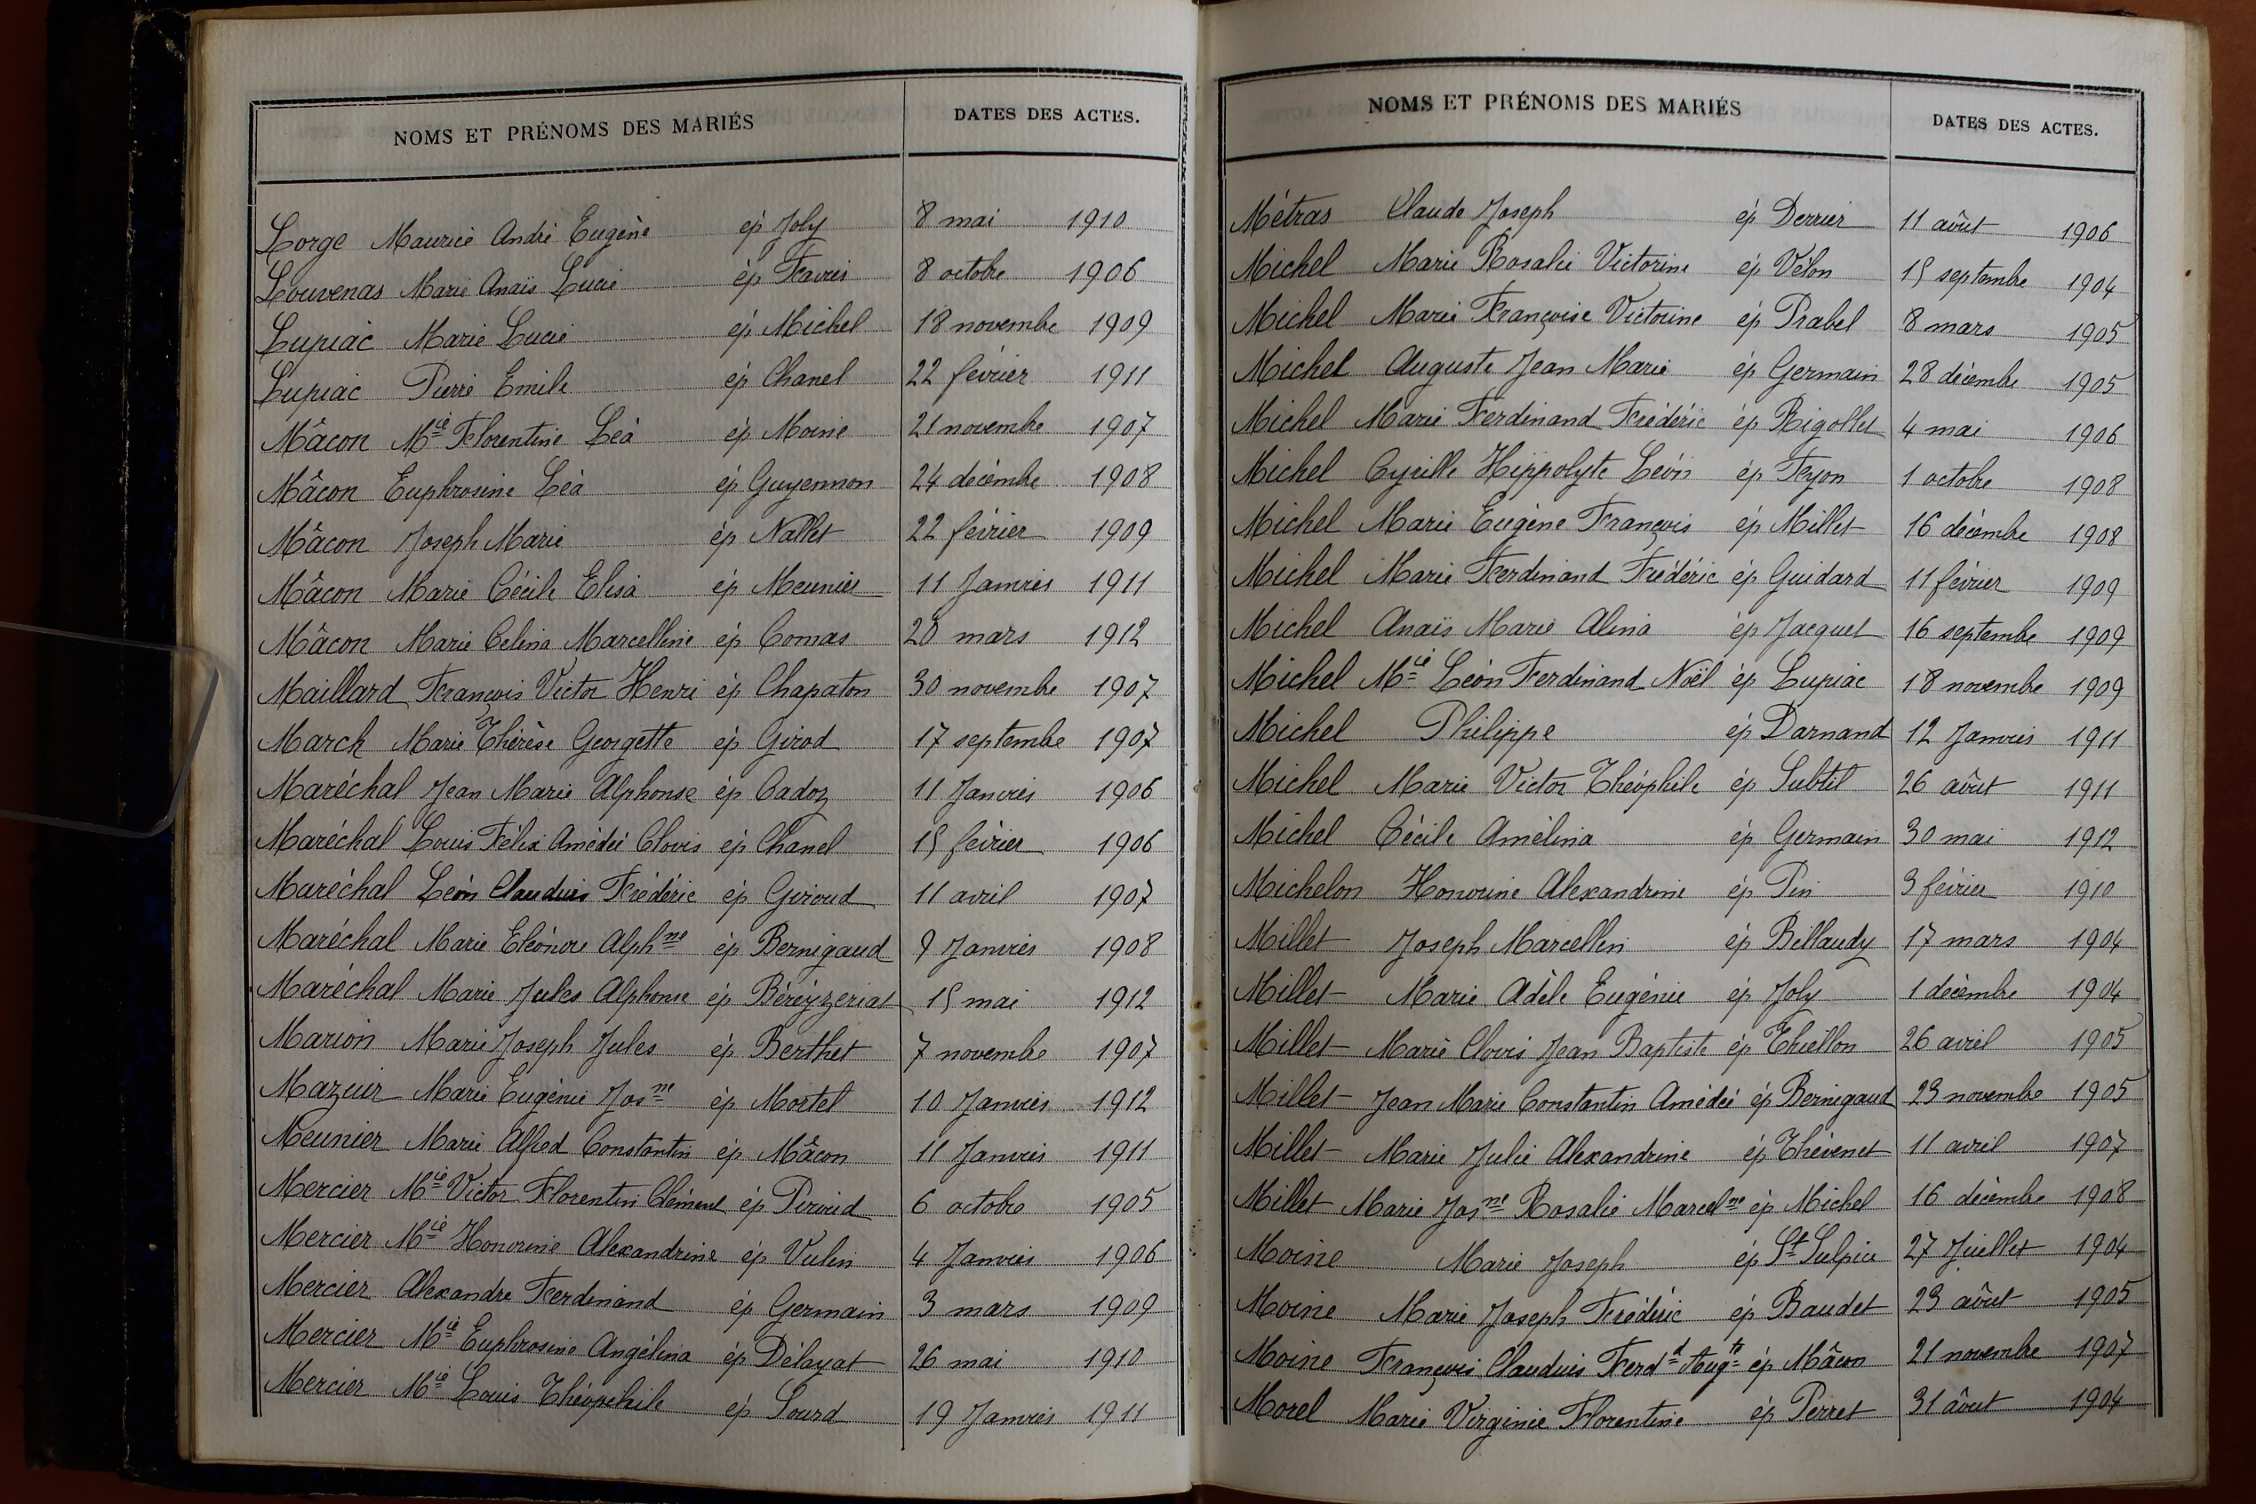 NOMS ET PRÉNOMS DES MARIÉS DATES DES ACTES.
Lorge Maurice André Eugène ép Joly 8 mai 1910
Louvenas Marie Anaïs Lucie ép Favris 8 octobre 1906
Lupiac Marie Lucie ép Michel 18 novembre 1909
Lupiac Pierre Emile ép Chanel 22 février 1911
Mâcon Mie Florentine Léa ép Moine 21 novembre 1907
Mâcon Euphrosine Léa ép Guyennon 24 décembre 1908
Mâcon Joseph Marie ép Nallet 22 février 1909
Mâcon Marie Cécile Elisa ép Meunier 11 Janvier 1911
Mâcon Marie Celina Marcelline ép Comas 20 mars 1912
Maillard François Victor Henri ép Chapaton 30 novembre 1907
March Marie Thérèse Georgette ép Girod 17 septembre 1907
Maréchal Jean Marie Alphonse ép Cadoz 11 Janvier 1906
Maréchal Louis Félix Amédée Clovis ép Chanel 15 février 1906
Maréchal Léon Claudius Frédéric ép Giroud 11 avril 1907
Maréchal Marie Eléonore Alphne ép Bernigaud 9 Janvier 1908
Maréchal Marie Jules Alphonse ép Béréyzeriat 15 mai 1912
Marion Marie Joseph Jules ép Berthet 7 novembre 1907
Mazuir Marie Eugénie Josne ép Mortel 10 Janvier 1912
Meunier Marie Alfred Constantin ép Mâcon 11 Janvier 1911
Mercier Mie Victor Florentin Clément ép Piroud 6 octobre 1905
Mercier Mie Honorine Alexandrine ép Vulin 4 Janvier 1906
Mercier Alexandre Ferdinand ép Germain 3 mars 1909
Mercier Mie Euphrosine Angélina ép Délayat 26 mai 1910
Mercier Mie Louis Théophile ép Sourd 19 Janvier 1911
NOMS ET PRÉNOMS DES MARIÉS DATES DES ACTES.
Métras Claude Joseph ép Derrier 11 août 1906
Michel Marie Rosalie Victorine ép Vélon 15 septembre 1904
Michel Marie Françoise Victorine ép Prabel 8 mars 1905
Michel Auguste Jean Marie ép Germain 28 décembre 1905
Michel Marie Ferdinand Frédéric ép Rigollet 4 mai 1906
Michel Cyrille Hippolyte Léon ép Fyon 1 octobre 1908
Michel Marie Eugène François ép Millet 16 décembre 1908
Michel Marie Ferdinand Frédéric ép Guidard 11 février 1909
Michel Anaïs Marie Alina ép Jacquet 16 septembre 1909
Michel Mie Léon Ferdinand Noël ép Lupiac 18 novembre 1909
Michel Philippe ép Darnand 12 Janvier 1911
Michel Marie Victor Théophile ép Subtil 26 août 1911
Michel Cécile Amélina ép Germain 30 mai 1912
Michelon Honorine Alexandrine ép Pin 3 février 1910
Millet Joseph Marcellin ép Billaudy 17 mars 1904
Millet Marie Adèle Eugénie ép Joly 1 décembre 1904
Millet Marie Clovis Jean Baptiste ép Thiellon 26 avril 1905
Millet Jean Marie Constantin Amédée ép Bernigaud 23 novembre 1905
Millet Marie Julie Alexandrine ép Thévenet 11 avril 1907
Millet Marie Josne Rosalie Marcelne ép Michel 16 décembre 1908
Moine Marie Joseph ép St Sulpice 27 Juillet 1904
Moine Marie Joseph Frédéric ép Baudet 23 août 1905
Moine François Claudius Ferdd Augte ép Mâcon 21 novembre 1907
Morel Marie Virginie Florentine ép Perret 31 août 1904